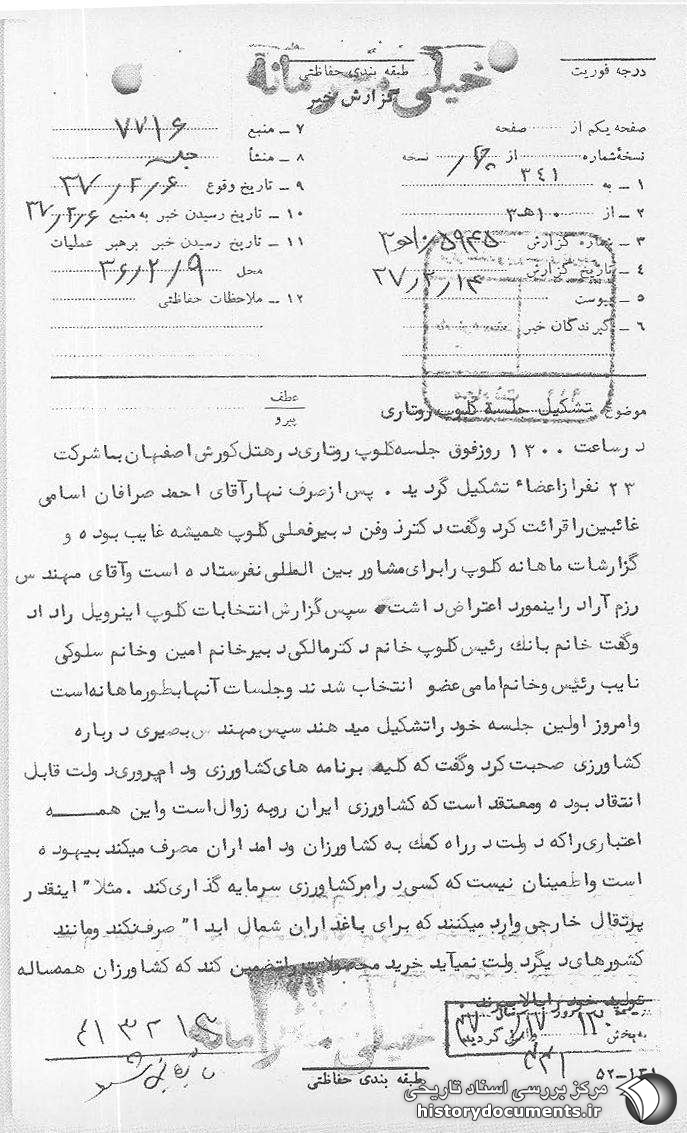 طبقه بندی حفاظتی
خیلی محرمانه
گزارش خبر
درجه فوریت
صفحه یکم از صفحه
نسخهٔ شماره از نسخه
۱ ـ به ۳٤۱
۲ ـ از ۱۰هـ۳
۳ ـ شماره گزارش
۴ ـ تاریخ گزارش
۵ ـ پیوست
۶ ـ گیرندگان خبر
۷ ـ منبع ۷۷۱۶
۸ ـ منشأ جلسه
۹ ـ تاریخ وقوع ۳۷/۲/۶
۱۰ ـ تاریخ رسیدن خبر به منبع ۳۷/۲/۶
۱۱ ـ تاریخ رسیدن خبر برهبر عملیات
محل ۳۶/۲/۹
۱۲ ـ ملاحظات حفاظتی
عطف
پیرو
موضوع: تشکیل جلسه کلوپ روتاری
درساعت ۱۳۰۰ روزفوق جلسه کلوپ روتاری در هتل کورش اصفهان با شرکت
۲۳ نفرازاعضاء تشکیل گردید . پس ازصرف نهارآقای احمد صرافان اسامی
غائبین راقرائت کرد وگفت دکترذوفن دبیرفعلی کلوپ همیشه غایب بوده و
گزارشات ماهانه کلوپ رابرای مشاور بین المللی نفرستاده است وآقای مهندس
رزم آراد راینمورد اعتراض داشت . سپس گزارش انتخابات کلوپ اینرویل راداد
وگفت خانم بانك رئیس کلوپ خانم دکترمالکی دبیرخانم امین وخانم سلوکی
نایب رئیس وخانم امامی عضو انتخاب شدند وجلسات آنها بطورماهانه است
وامروز اولین جلسه خود راتشکیل میدهند سپس مهندس بصیری درباره
کشاورزی صحبت کرد وگفت که کلیه برنامه های کشاورزی ودامپروری دولت قابل
انتقاد بوده ومعتقد است که کشاورزی ایران روبه زوال است واین همه
اعتباری راکه دولت درراه کمك به کشاورزان ودامداران مصرف میکند بیهوده
است واطمینان نیست که کسی درامرکشاورزی سرمایه گذاری کند . مثلا" اینقدر
پرتقال خارجی وارد میکنند که برای باغداران شمال ابدا" صرف نکند ومانند
کشورهای دیگردولت نمیآید خرید محصولات راتضمین کند که کشاورزان همه ساله
تولید خود رابالاببرند .
خیلی محرمانه
طبقه بندی حفاظتی
۳۳۱
۵۲-۱۲۱
مرکز بررسی اسناد تاریخی
historydocuments.ir